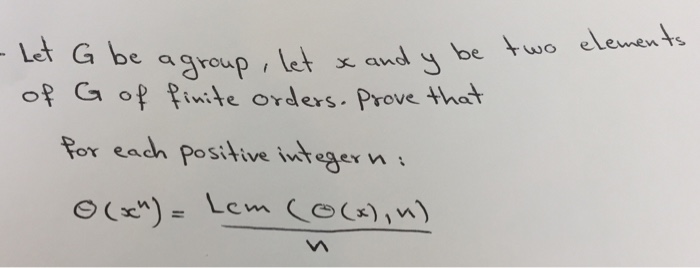 - Let G be a group, let x and y be two elements
of G of finite orders. Prove that
for each positive integer n :
O(xⁿ) = Lcm (O(x), n)
n